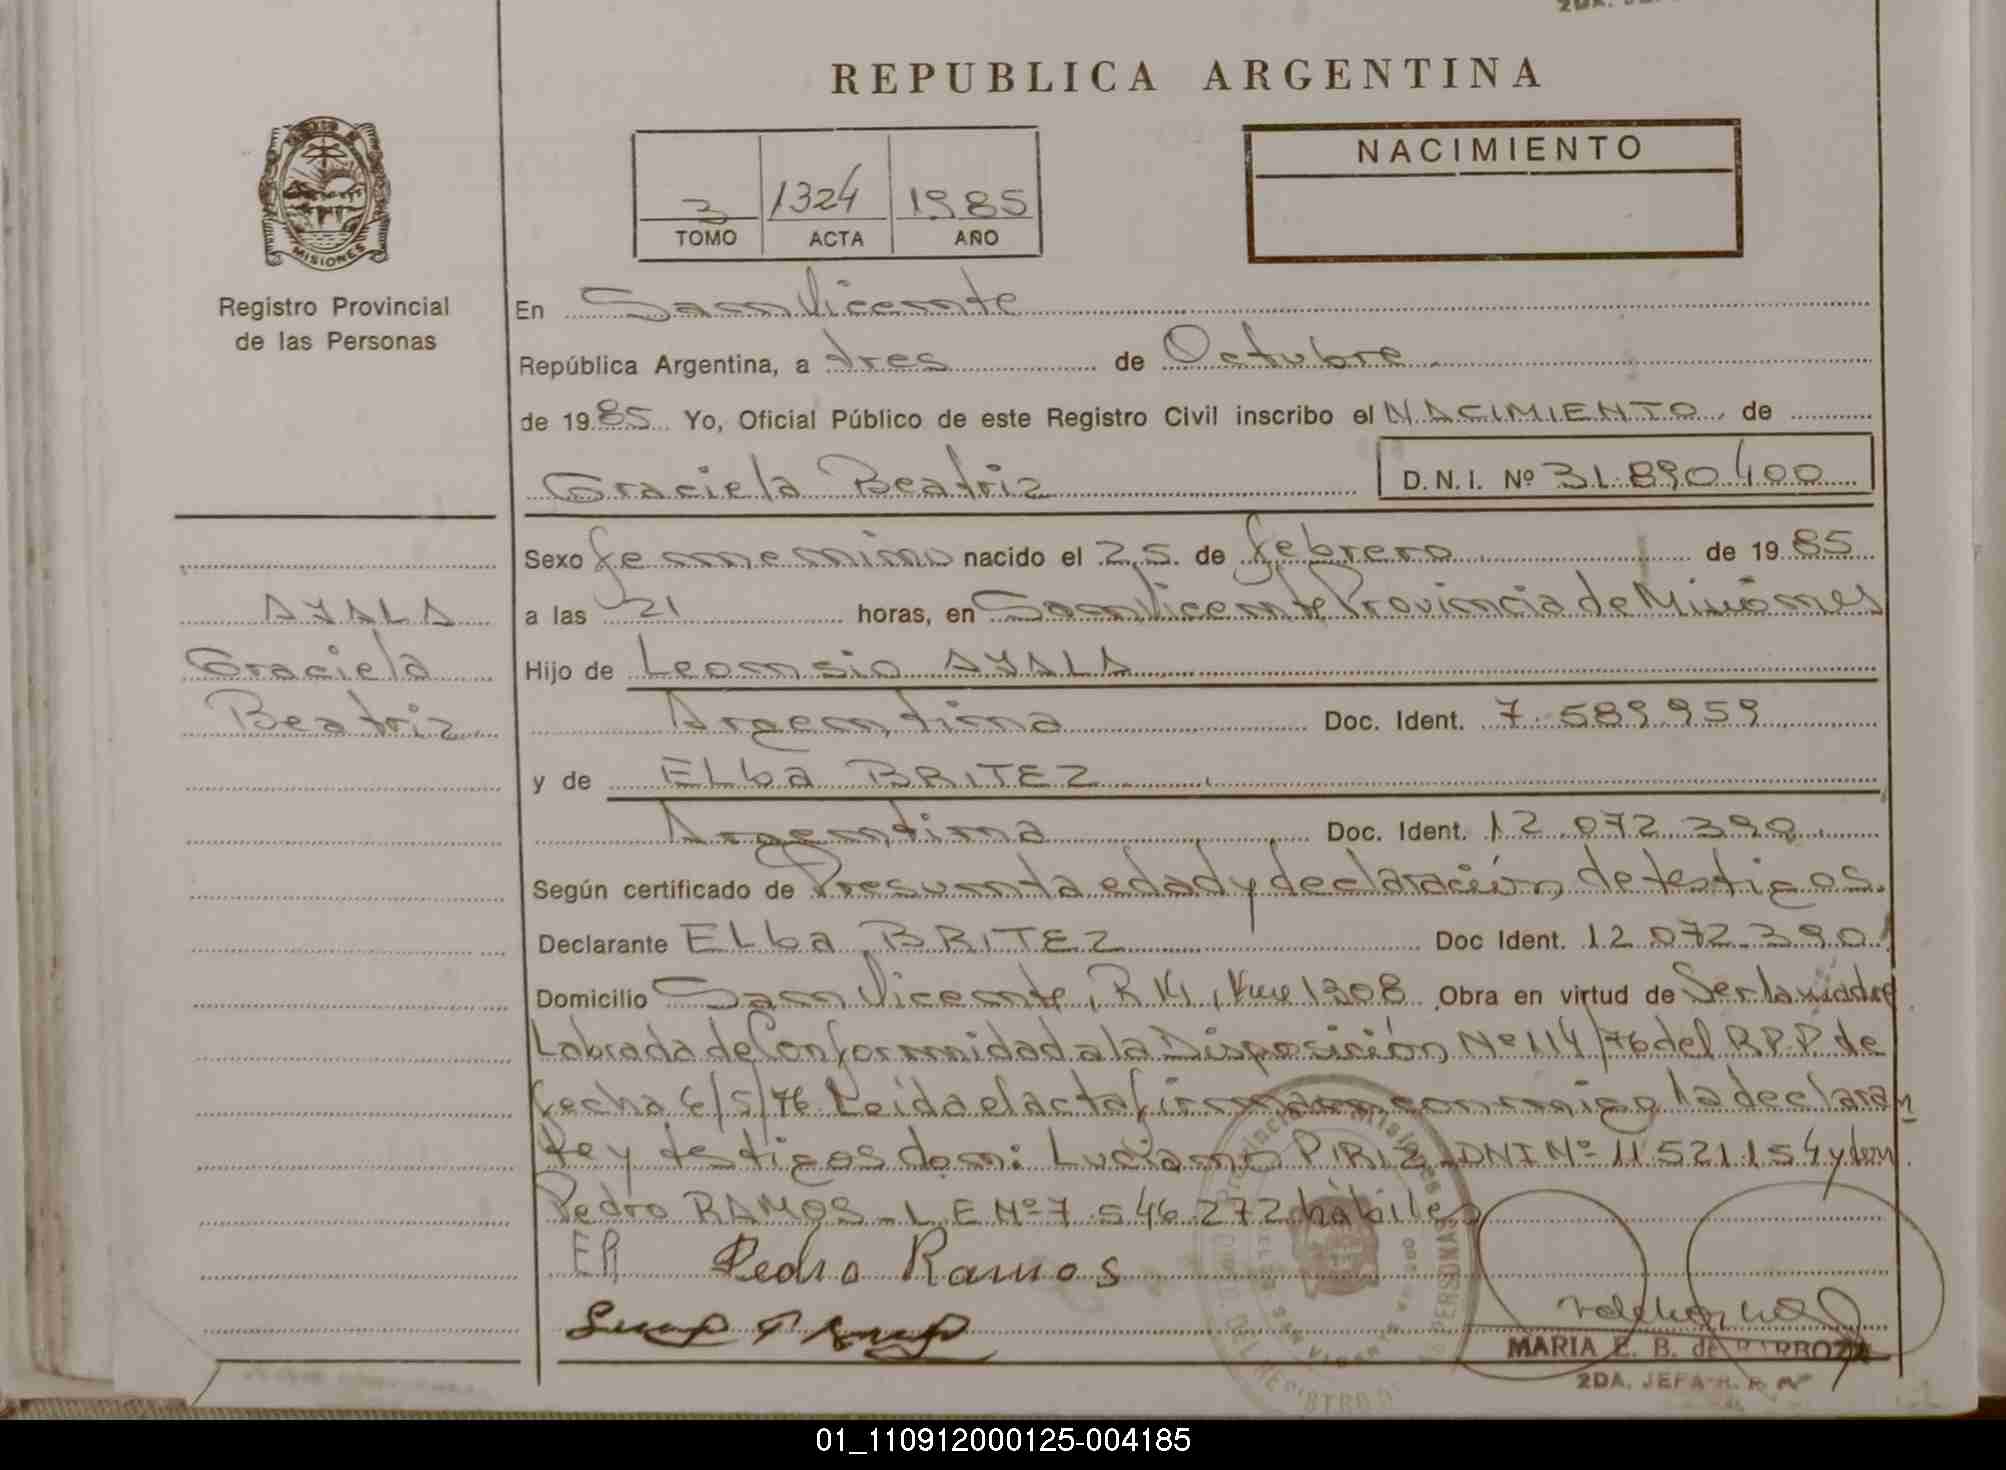 REPUBLICA ARGENTINA
MISIONES
Registro Provincial
de las Personas
3 1324 1985
TOMO ACTA AÑO
NACIMIENTO
En San Vicente
República Argentina, a tres de Octubre
de 1985 Yo, Oficial Público de este Registro Civil inscribo el NACIMIENTO de
Graciela Beatriz D.N.I. Nº 31.890.400
AYALA
Graciela
Beatriz
Sexo femenino nacido el 25 de febrero de 1985
a las 21 horas, en San Vicente Provincia de Misiones
Hijo de Leonsio AYALA
Argentina Doc. Ident. 7.589.959
y de ELba BRITEZ
Argentina Doc. Ident. 12.072.390
Según certificado de Presunta edad y declaración de testigos.
Declarante ELba BRITEZ Doc Ident. 12.072.390
Domicilio San Vicente, R 14, Km 1308 Obra en virtud de Ser la madre
Labrada de Conformidad a la Disposición Nº 114/76 del R.P.P de
fecha 6/5/76 Leida el acta firman conmigo la declaran
te y testigos don: Luciano PIRIZ DNI Nº 11.521.154 y don
Pedro RAMOS L.E Nº 7.546.272 hábiles
Pedro Ramos
MARIA E. B. de BARBOZA
2DA. JEFA R. P.
01_110912000125-004185